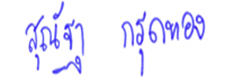 สุณัฐา กรุดทอง